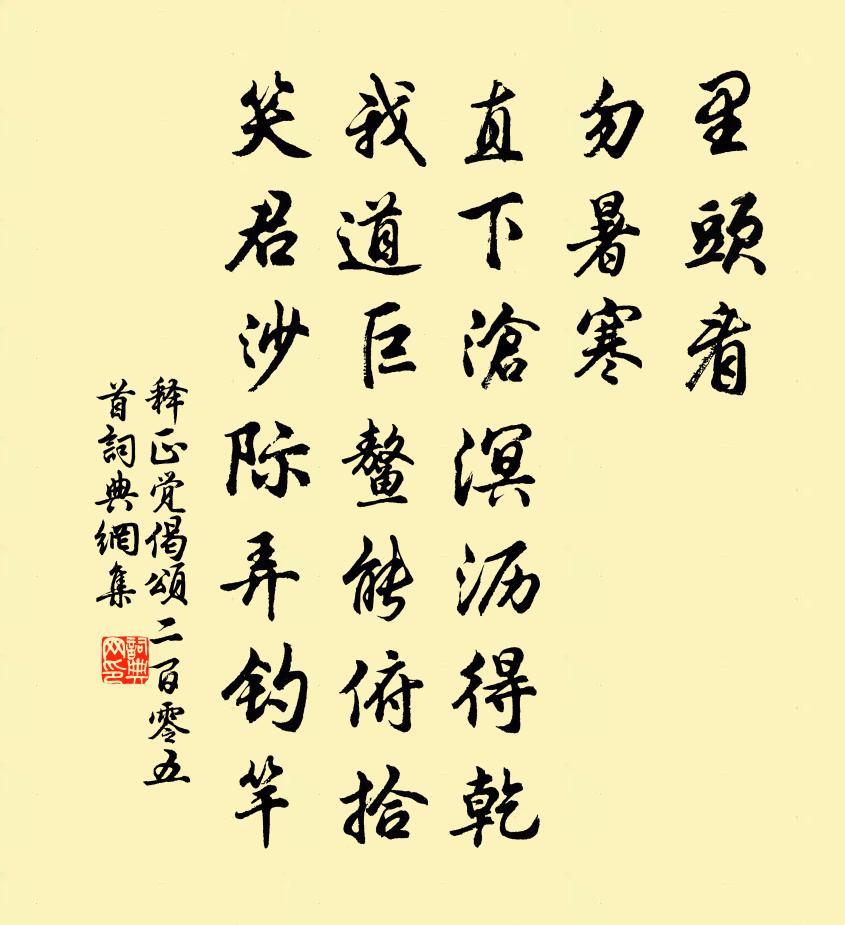 里頭看
勿暑寒
直下滄溟沥得乾
我道巨鳌能俯拾
笑君沙际弄釣竿
释正觉偈頌二百零五
首詞典網集
詞典
网印